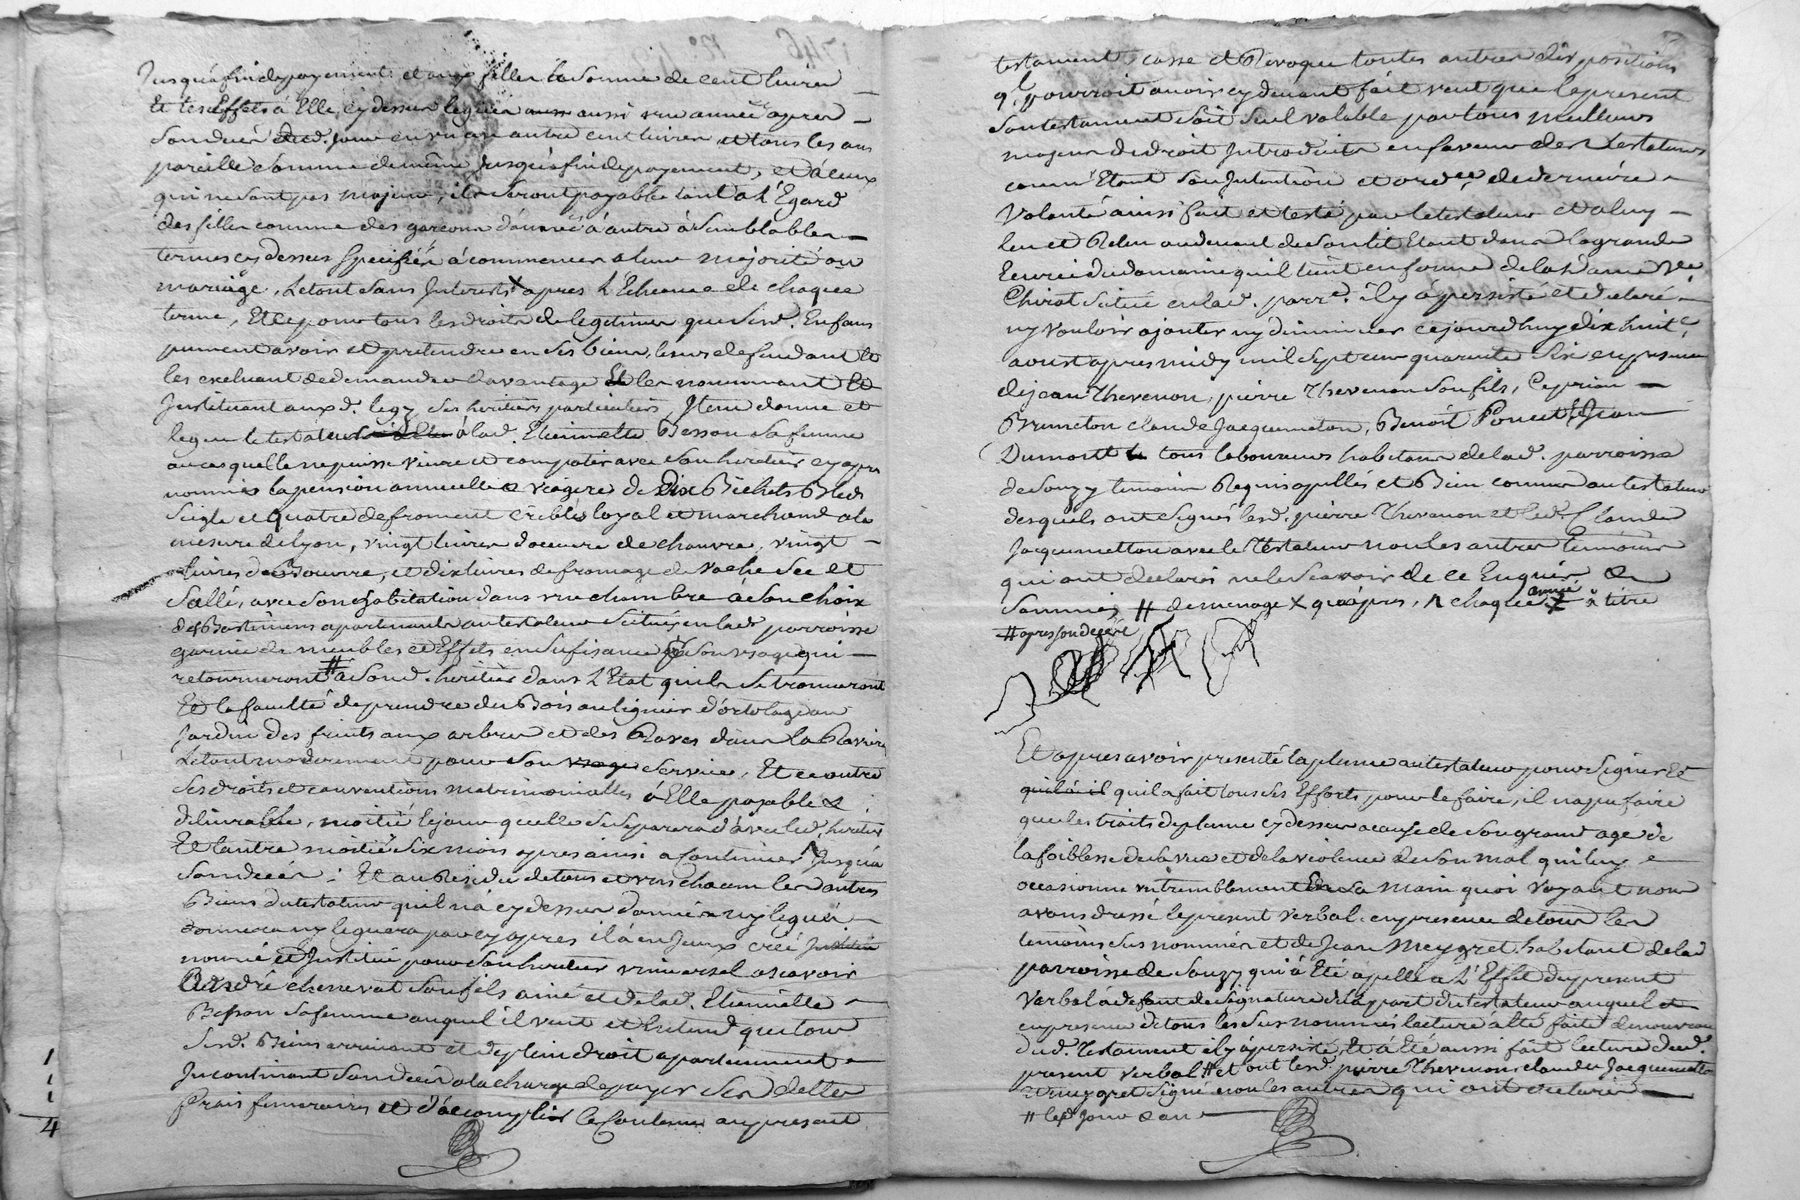 Jusqua fin de payement et aux filles la somme de cent livres
Et les Effets à Elle cy dessus legués aussi une année apres
son deces dud. jour en un an autre cent livres et tous les ans
pareille somme de même jusqu'à fin de payement, et à ceux
qui ne sont pas majeurs, ils seront payable tant a l'Egard
des filles comme des garcons d'année à autre à semblables
termes cy dessus specifiés à commencer a leur majorité ou
mariage, Letout sans Interests X apres l'Echeance de chaque
terme, Et ce pour tous les droits de legitimes que sesd. Enfans
puissent avoir et pretendre en ses biens, leurs defendant et
les excluant de demander davantage et les nommant Et
Instituant auxd. legz ses heritiers particuliers, Item donne et
legue le testateur à lad. Etiennette Besson sa femme
au cas quelle ne puisse vivre et compatir avec son heritier cy apres
nommé la pension annuelle & viagere de Dix Bichets Bled
seigle et quatre de froment criblés loyal et marchand a la
mesure de lyon, vingt livres d'oeuvre de chanvre, vingt
livres de Beurre, et dix livres de fromage de vache sec et
sallé, avec son habitation dans une chambre à son choix
des Bastiments apartenants au testateur scitués en lad. parroisse
garnie de meubles et Effets en sufisance à son usage qui
retourneront # à sond. heritier dans l'Etat quils se trouveront
Et la faculté de prendre du Bois au lignier d'ortolage au
Jardin des fruits aux arbres et des Raves dans la Raviere
Letout moderement pour son usage service, Et ce outre
ses droits et conventions matrimonialles à Elle payable &
delivrable, moitié le jour quelle se separera d'avec led. heritier
Et l'autre moitié six mois apres ainsi a continuer Λ jusqu'a
son deces. Et au Residu de tous et uns chacuns les autres
Biens du testateur qu'il n'a cy dessus donné ny legué
donnera ny leguera par cy apres il a en Iceux créé
nommé et Institué pour son heritier universel ascavoir
André chenevat son fils ainé et de lad. Etiennette
Besson sa femme auquel il veut et Entend que tous
sesd. Biens arrivent et de plein droit apartiennent
Incontinant son deces a la charge de payer ses dettes
frais funeraires et d'acomplir le contenu au present
testament, casse et Revoque toutes autres dispositions
ql pourroit avoir cy devant fait veut que le present
son testament soit seul valable par tous meilleurs
moyens de droit Introduits en faveur des testateurs
comm' Etant son Intention et ordce. de derniere
Volonté ainsi fait et testé par le testateur et a luy
leu et Releu au devant de son lit Etant dans la grande
Ecurie du domaine qu'il tient en ferme de la Dame Vve.
Chirat scitué en lad. parre. il y a persisté et declaré
ny vouloir ajouter ny diminuer ce jourd'huy dix huit
aoust apres midy mil sept cent quarante six en presence
de jean Thevenon, pierre Thevenon son fils, Ciprien
Bruneton claude Jacquemeton, Benoit Poncet & Jean
Dumont tous laboureurs habitans de lad. parroisse
de Souzy temoins Requis apellés et Bien connus au testateur
desquels ont signés lesd. pierre Thevenon et led. Claude
Jacquemetton avec le Testateur non les autres temoins
qui ont declarés ne le scavoir de ce Enquis &
Sommés # de menage X qu'après, Λ chaque année à titre
# apres son deces
Et apres avoir presenté la plume au testateur pour signer Et
qu'il a fait tous ses Efforts pour le faire, il na pu faire
que les traits de plume cy dessus a cause de son grand age de
la foiblesse de sa vue et de la violence de son mal qui luy
occasionne un tremblement En La main quoi voyant nous
avons dressé le present Verbal en presence de tous les
temoins sus nommés et de Jean Meygret habitant de lad.
parroisse de Souzy qui à Eté apellé a l'Effet du present
Verbal à defaut de signature de la part du testateur auquel et
en presence de tous les sus nommés lecture à Eté faite de nouveau
dud. Testament il y à persisté, Et à Eté aussi fait lecture dud.
present Verbal # et ont lesd. pierre Thevenon claude Jacquemetton
et meygret signé non les autres qui ont declarés
# lesd. jour & an
1
1
1
4